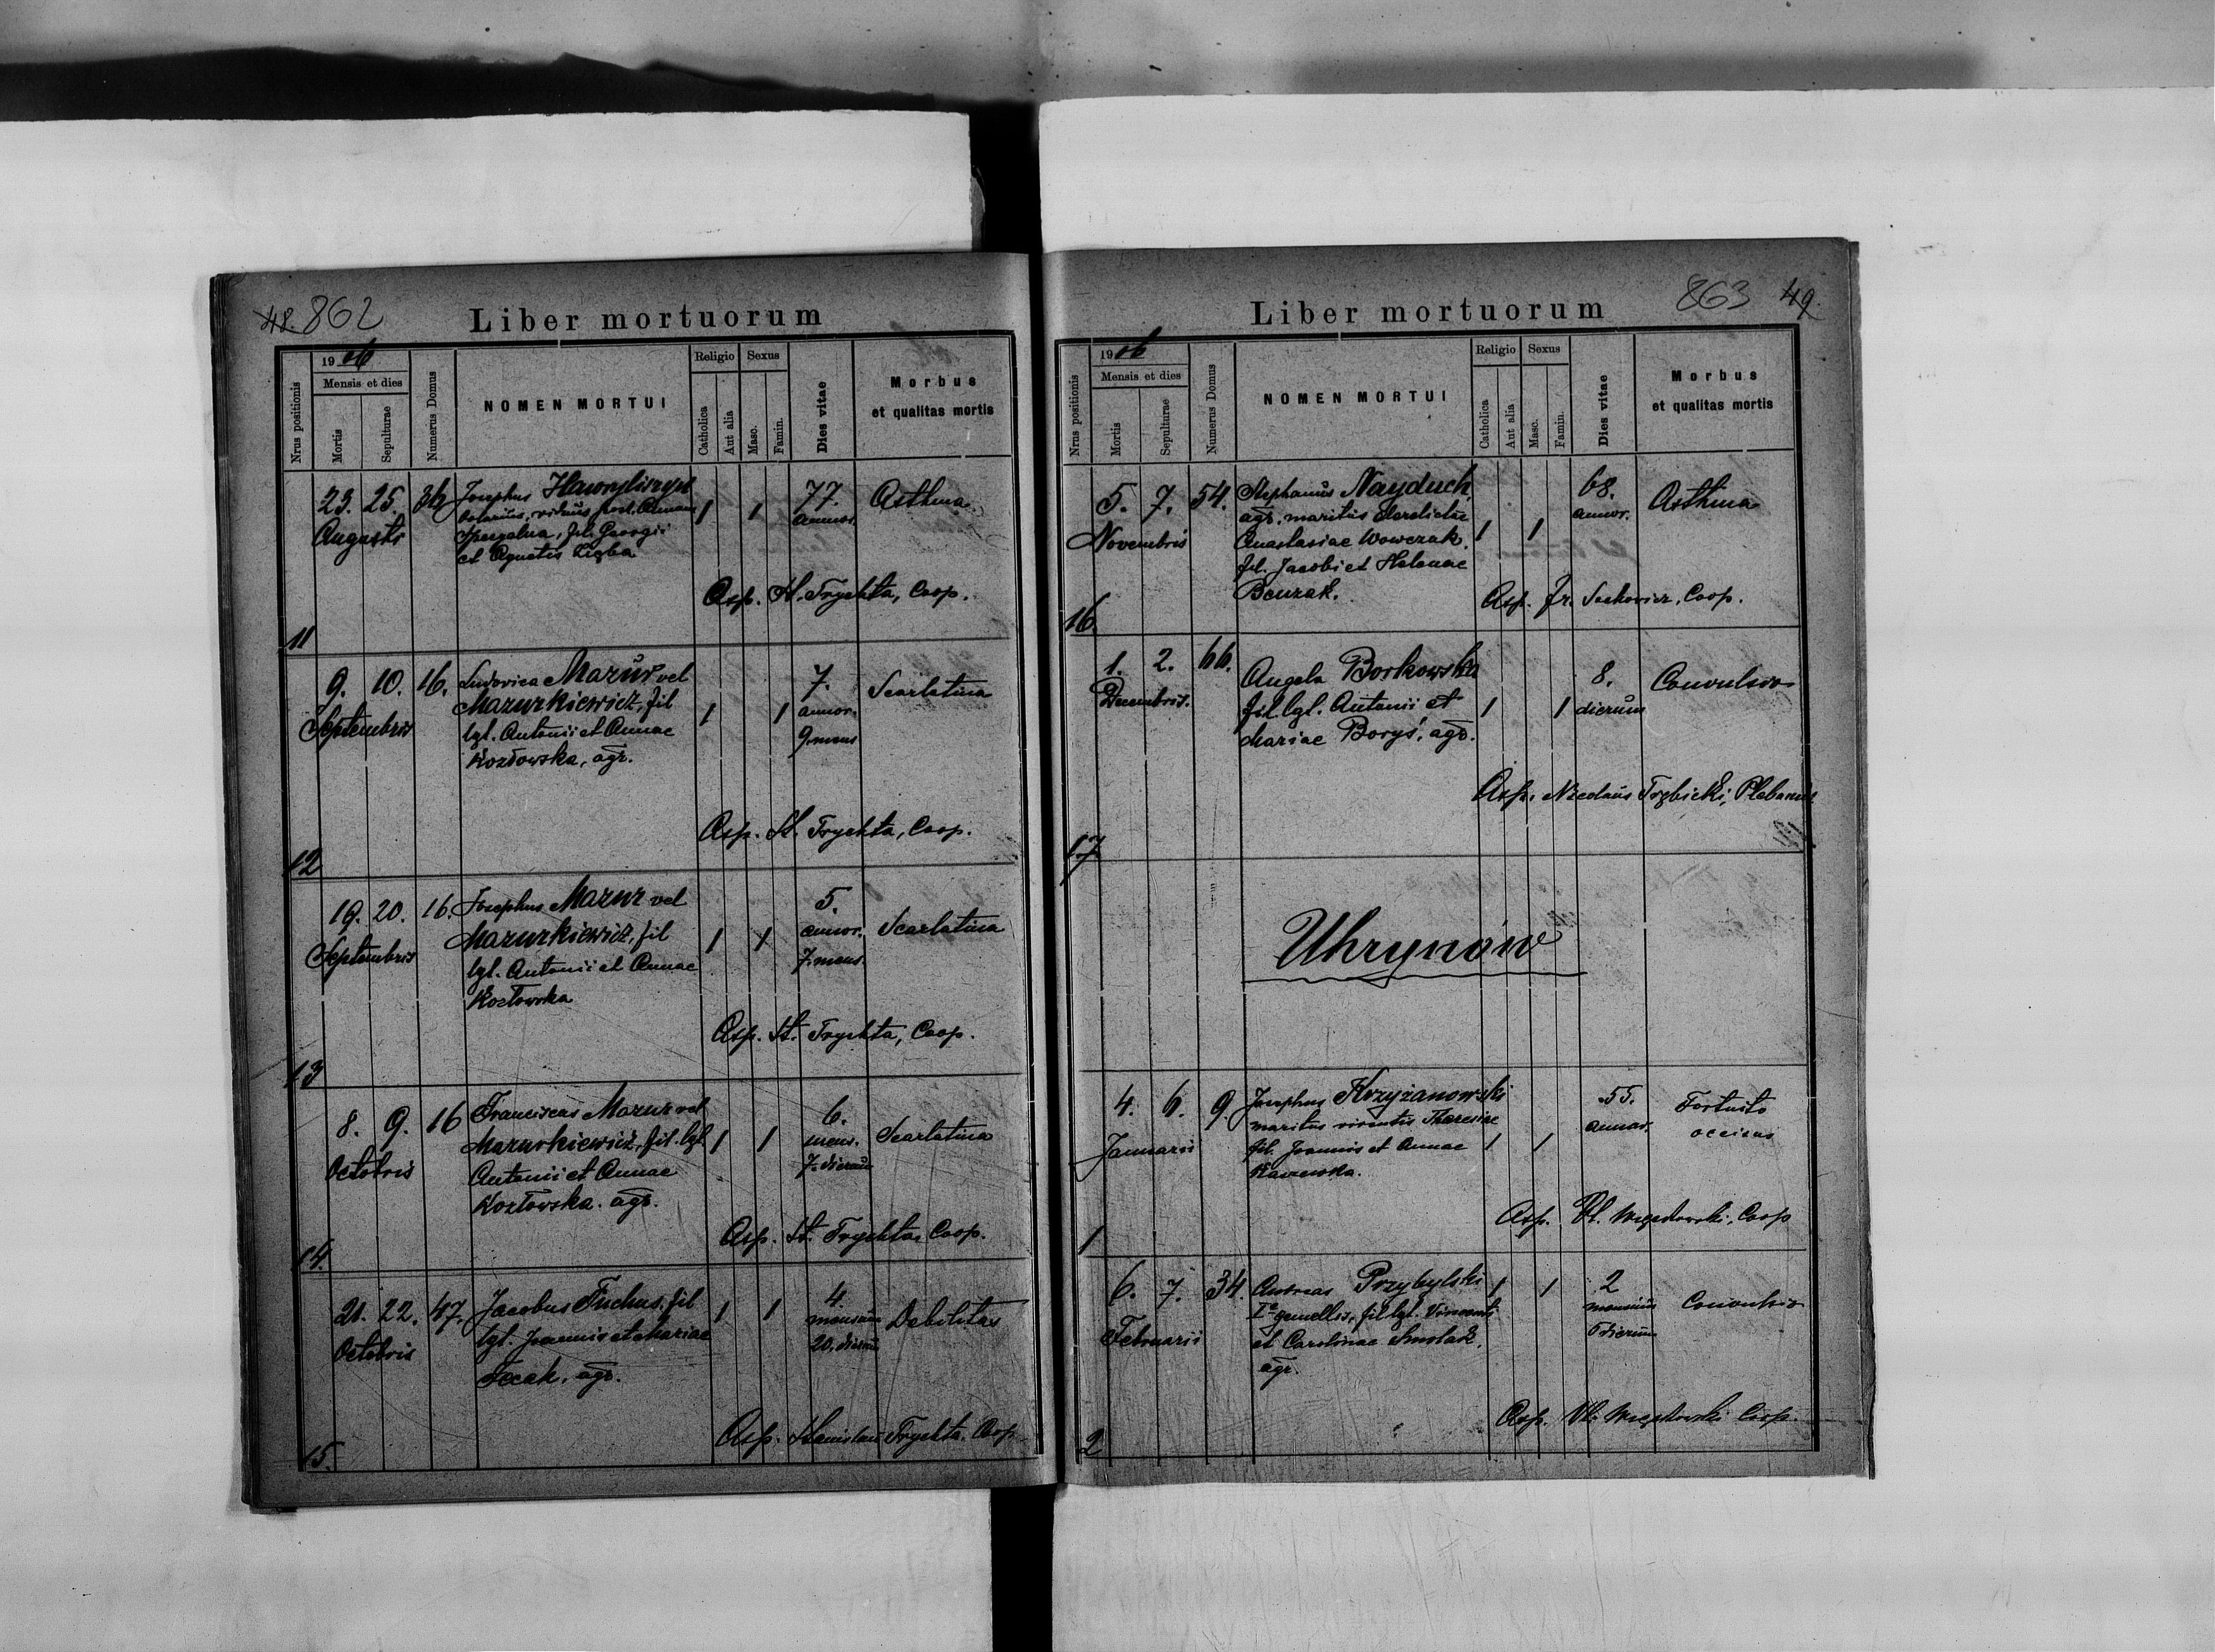 48. 862
Liber mortuorum
Nrus positionis
1906
Mensis et dies
Mortis
Sepulturae
Numerus Domus
NOMEN MORTUI
Religio
Catholica
Aut alia
Sexus
Masc.
Famin.
Dies vitae
Morbus
et qualitas mortis
23. 25. Josephus Hawryliszyn 77. Asthma
Augusti viduus post. Annam annor. 1 1
fil. Georgii
et Agnetis Zięba
Asp. St. Trychta, Coop.
11
9. 10. 16. Ludovica Mazur vel 7. Scarlatina
Septembris Mazurkiewicz, fil 1 1 annor.
lgt. Antonii et Annae 9. mens
Kozłowska, agr.
Asp. St. Trychta, Coop.
12
19. 20. 16. Josephus Mazur vel 5.
Septembris Mazurkiewicz, fil 1 1 annor. Scarlatina
lgt. Antonii et Annae 7. mens.
Kozłowska
Asp. St. Trychta, Coop.
13
8. 9. 16 Franciscus Mazur vel 6.
Octobris Mazurkiewicz, fil. lgt. 1 1 mens. Scarlatina
Antonii et Annae 7. dierum
Kozłowska. agr.
Asp. St. Trychta, Coop.
14.
21. 22. 47. Jacobus Fuchus, fil 1 1 4.
Octobris lgt. Joannis et Mariae mensium Debilitas
agr. 20. dierum
Asp. Stanislaus Trychta. Coop.
15.
863 49.
Liber mortuorum
Nrus positionis
1906
Mensis et dies
Mortis
Sepulturae
Numerus Domus
NOMEN MORTUI
Religio
Catholica
Aut alia
Sexus
Masc.
Famin.
Dies vitae
Morbus
et qualitas mortis
5. 7. 54. Stephanus Nayduch, 68. Asthma
Novembris agr. maritus derelictae annor.
Anastasiae Wowczak. 1 1
fil. Jacobi et Helenae
Benzak.
Asp. Fr. Coop.
16.
1. 2. 66. Angela Borkowska 8. Convulsio
Decembris. fil. lgt. Antonii et 1 1 dierum
Mariae Boryś, agr.
Asp. Nicolaus Trzbicki, Plebanus
17
Uhrynów
4. 6. 9. Josephus Krzyżanowski 55. Fortuito
Januarii maritus viventis Theresiae annor. occisus
fil. Joannis et Annae 1 1
Asp. Vl. Coop
1
6. 7. 34. Andreas Przybylski 1 1 2
Februarii Iº gemellis, fil lgt. Vincenti mensium Convulsio
et Carolinae Smolak. dierum
agr.
Asp. Vl. Coop.
2